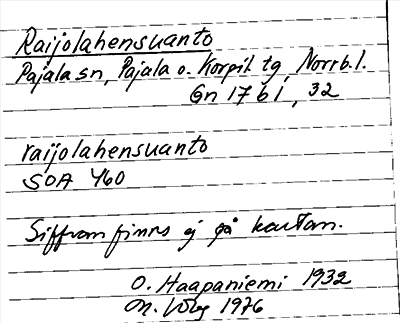 Raijolahensuanto
Pajala sn, Pajala o. Korpil. tg, Norrb. l.
Gn 17 b 1, 32
raijolahensuanto
SOA 460
Siffran finns ej på kartan.
O. Haapaniemi 1932
1976